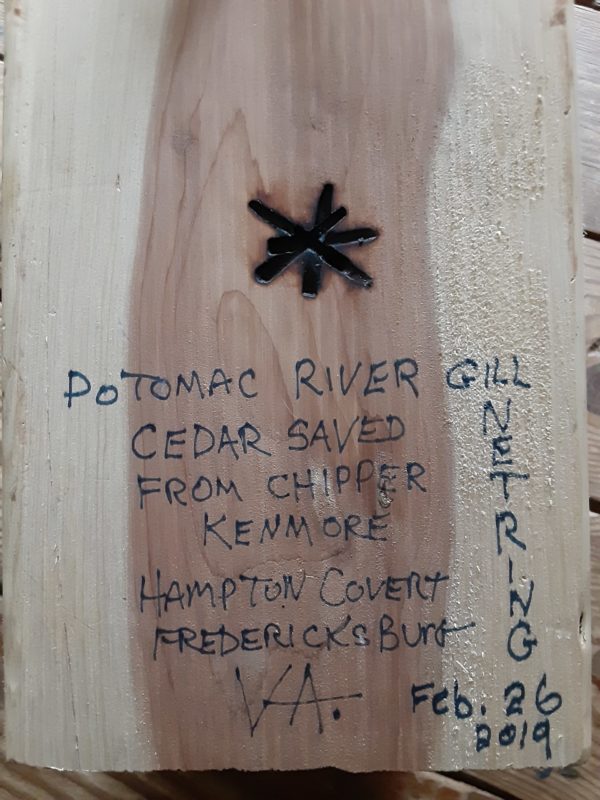 POTOMAC RIVER GILL
NET RING
CEDAR SAVED
FROM CHIPPER
KENMORE
HAMPTON COVERT
FREDERICKSBURG
VA.
Feb. 26
2019